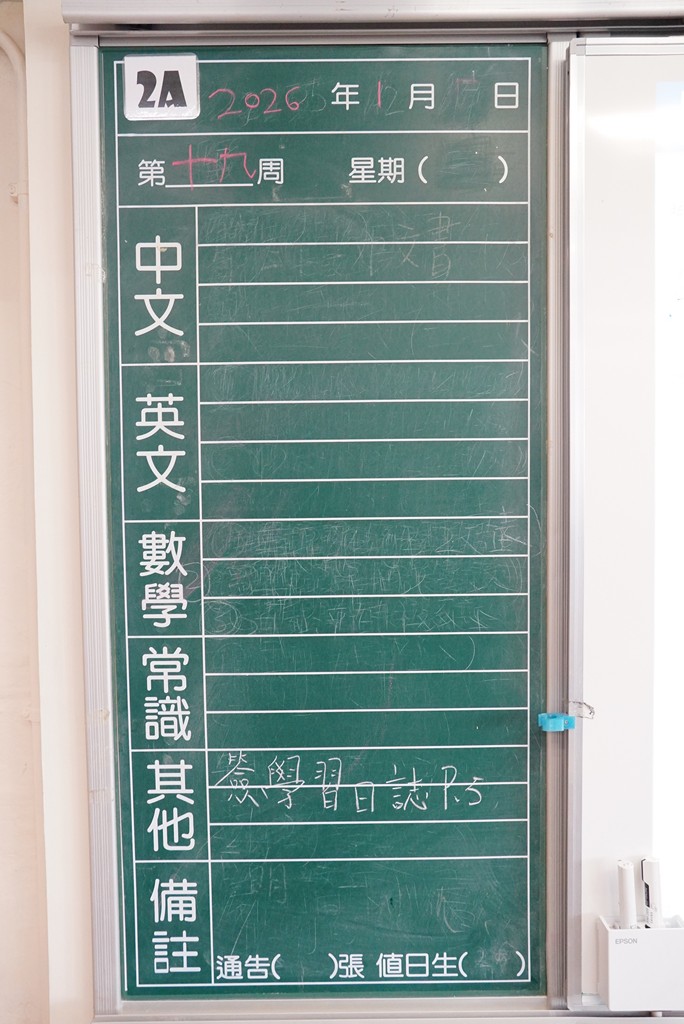 2A 2026年1月 日
第十九周 星期( )
中文
英文
數學
常識
其他
簽學習日誌P.5
備註
通告( )張 值日生( )
EPSON